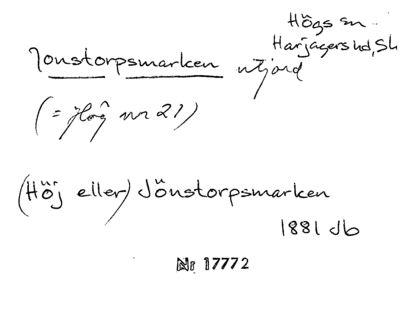 Högs sn
Harjagers hd, Sk
Jonstorpsmarken utjord
(= Hög nr 21)
(Höj eller) Jönstorpsmarken
1881 Jb
Nr 17772